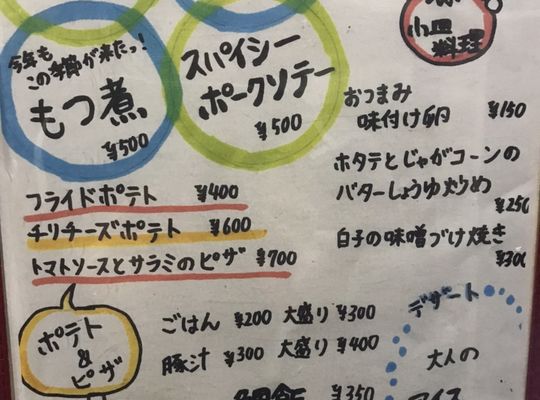 今年も
この季節が来たっ!
もつ煮
¥500
スパイシー
ポークソテー
¥500
小皿
料理
おつまみ
味付け卵 ¥150
ホタテとじゃがコーンの
バターしょうゆ炒め
¥250
白子の味噌づけ焼き
¥300
フライドポテト ¥400
チリチーズポテト ¥600
トマトソースとサラミのピザ ¥700
ポテト
&
ピザ
ごはん ¥200 大盛り ¥300
豚汁 ¥300 大盛り ¥400
¥350
デザート
大人の
アイス